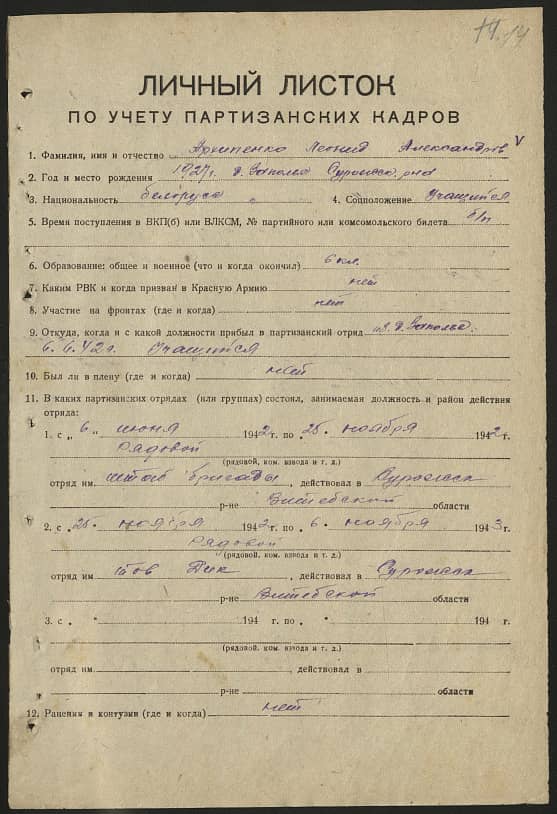 14
ЛИЧНЫЙ ЛИСТОК
ПО УЧЕТУ ПАРТИЗАНСКИХ КАДРОВ
1. Фамилия, имя и отчество Архипенко Леонид Александров V
2. Год и место рождения 1927 г. д. Заполье Суражск. р-на
3. Национальность белорус 4. Соцположение Учащийся
5. Время поступления в ВКП(б) или ВЛКСМ, № партийного или комсомольского билета б/п
6. Образование: общее и военное (что и когда окончил) 6 кл.
7. Каким РВК и когда призван в Красную Армию нет
8. Участие на фронтах (где и когда) нет
9. Откуда, когда и с какой должности прибыл в партизанский отряд из д. Заполье
6. 6. 42 г. Учащийся
10. Был ли в плену (где и когда) нет
11. В каких партизанских отрядах (или группах) состоял, занимаемая должность и район действия
отряда:
1. с „6 „ июня 1942 г. по „25. ноября 1942 г.
Рядовой
(рядовой, ком. взвода и т. д.)
отряд им. штаб бригады, действовал в Суражск
р-не Витебской области
2. с „25. ноября 1942 г. по „6. ноября 1943 г.
Рядовой
(рядовой, ком. взвода и т. д.)
отряд им тов Дик, действовал в Суражск
р-не Витебской области
3. с „ " 194 г. по „ " 194 г.
(рядовой, ком. взвода и т. д.)
отряд им , действовал в
р-не области
12. Ранения и контузии (где и когда) нет